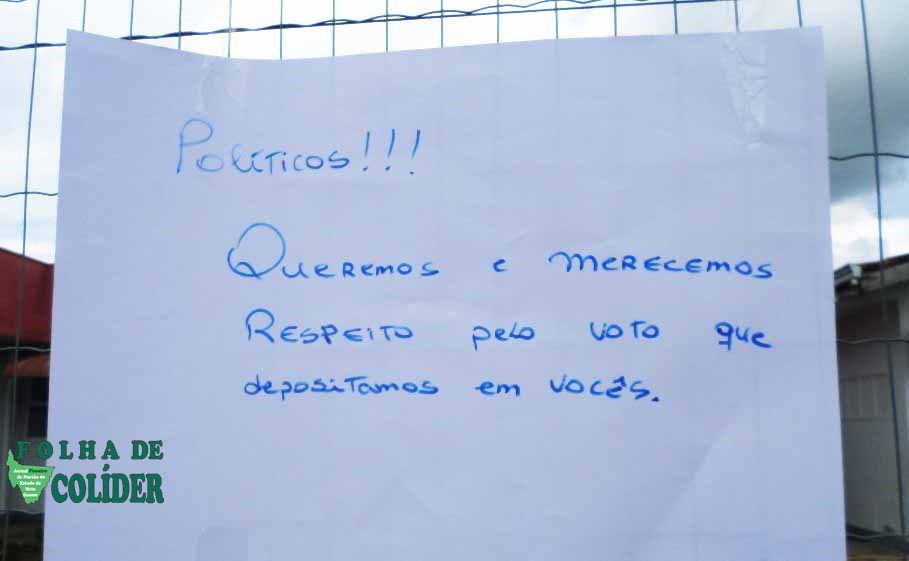 Políticos!!!
Queremos e merecemos
Respeito pelo voto que
depositamos em vocês.
FOLHA DE
COLÍDER
Jornal Pioneiro
do Nortão do
Estado de
Mato
Grosso